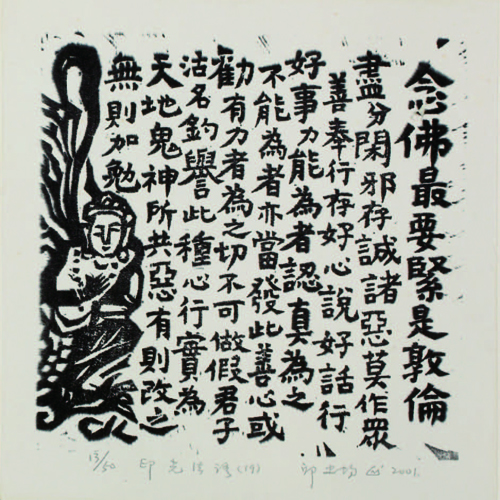 念佛最要緊是敦倫
盡分閑邪存誠諸惡莫作眾
善奉行存好心說好話行
好事力能為者認真為之
不能為者亦當發此善心或
勸有力者為之切不可做假君子
沽名釣譽此種心行實為
天地鬼神所共惡有則改之
無則加勉
13/50 印光法語(19) 2001